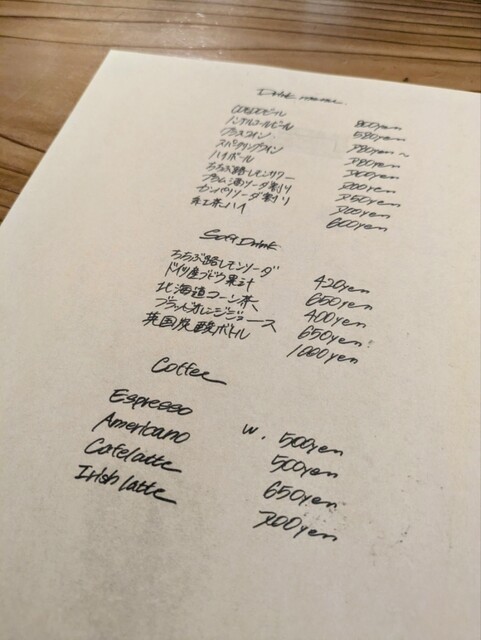 Drink menu.
COEDOビール 800yen
ノンアルコールビール 580yen
グラスワイン 780yen~
スパークリングワイン 780yen
ハイボール 700yen
ちちぶ路レモンサワー 700yen
プラム酒ソーダ割り 750yen
カンパリソーダ割り 700yen
紅茶ハイ 600yen
Soft Drink
ちちぶ路レモンソーダ 420yen
ドイツ産ブドウ果汁 650yen
北海道コーン茶 400yen
ブラッドオレンジジュース 650yen
英国炭酸ボトル 1000yen
Coffee
Espresso W. 500yen
Americano 500yen
Cafelatte 650yen
Irish latte 700yen